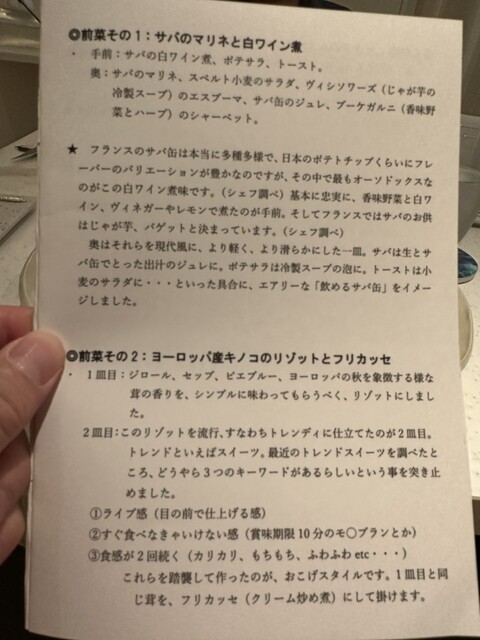 ◎前菜その1：サバのマリネと白ワイン煮
・ 手前：サバの白ワイン煮、ポテサラ、トースト。
奥：サバのマリネ、スペルト小麦のサラダ、ヴィシソワーズ（じゃが芋の
冷製スープ）のエスプーマ、サバ缶のジュレ、ブーケガルニ（香味野
菜とハーブ）のシャーベット。
★ フランスのサバ缶は本当に多種多様で、日本のポテトチップくらいにフレ
ーバーのバリエーションが豊かなのですが、その中で最もオーソドックスな
のがこの白ワイン煮味です。（シェフ調べ）基本に忠実に、香味野菜と白ワ
イン、ヴィネガーやレモンで煮たのが手前。そしてフランスではサバのお供
はじゃが芋、バゲットと決まっています。（シェフ調べ）
奥はそれらを現代風に、より軽く、より滑らかにした一皿。サバは生とサ
バ缶でとった出汁のジュレに。ポテサラは冷製スープの泡に。トーストは小
麦のサラダに・・・といった具合に、エアリーな「飲めるサバ缶」をイメー
ジしました。
◎前菜その2：ヨーロッパ産キノコのリゾットとフリカッセ
・ 1皿目：ジロール、セップ、ピエブルー、ヨーロッパの秋を象徴する様な
茸の香りを、シンプルに味わってもらうべく、リゾットにしまし
た。
2皿目：このリゾットを流行、すなわちトレンディに仕立てたのが2皿目。
トレンドといえばスイーツ。最近のトレンドスイーツを調べたと
ころ、どうやら3つのキーワードがあるらしいという事を突き止
めました。
①ライブ感（目の前で仕上げる感）
②すぐ食べなきゃいけない感（賞味期限10分のモ〇ブランとか）
③食感が2回続く（カリカリ、もちもち、ふわふわ etc・・・）
これらを踏襲して作ったのが、おこげスタイルです。1皿目と同
じ茸を、フリカッセ（クリーム炒め煮）にして掛けます。